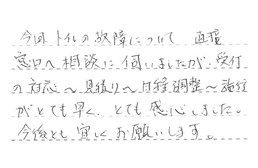 今回トイレの故障について 直接
窓口へ相談に伺いましたが、受付
の対応～見積り～日程調整～施行
がとても早く、とても感心しました。
今後とも宜しくお願いします。